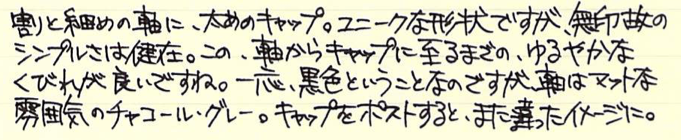 割りと細めの軸に、太めのキャップ。ユニークな形状ですが、無印故の
シンプルさは健在。この、軸からキャップに至るまでの、ゆるやかな
くびれが良いですね。一応、黒色ということなのですが、軸はマットな
雰囲気のチャコール・グレー。キャップをポストすると、また違ったイメージに。